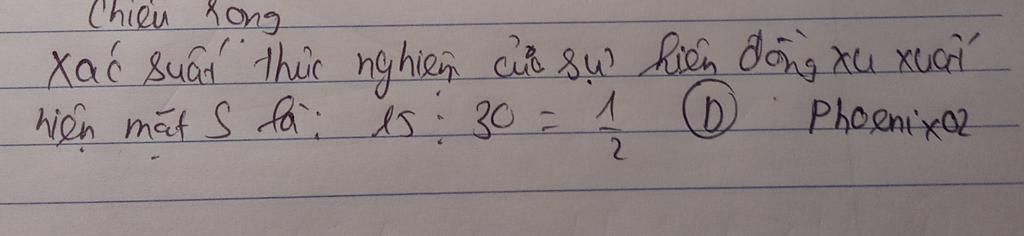 Chiều rộng
Xác suất thực nghiệm của sự kiện đồng xu xuất
hiện mặt S là: 15 : 30 = 1/2 D Phoenix02